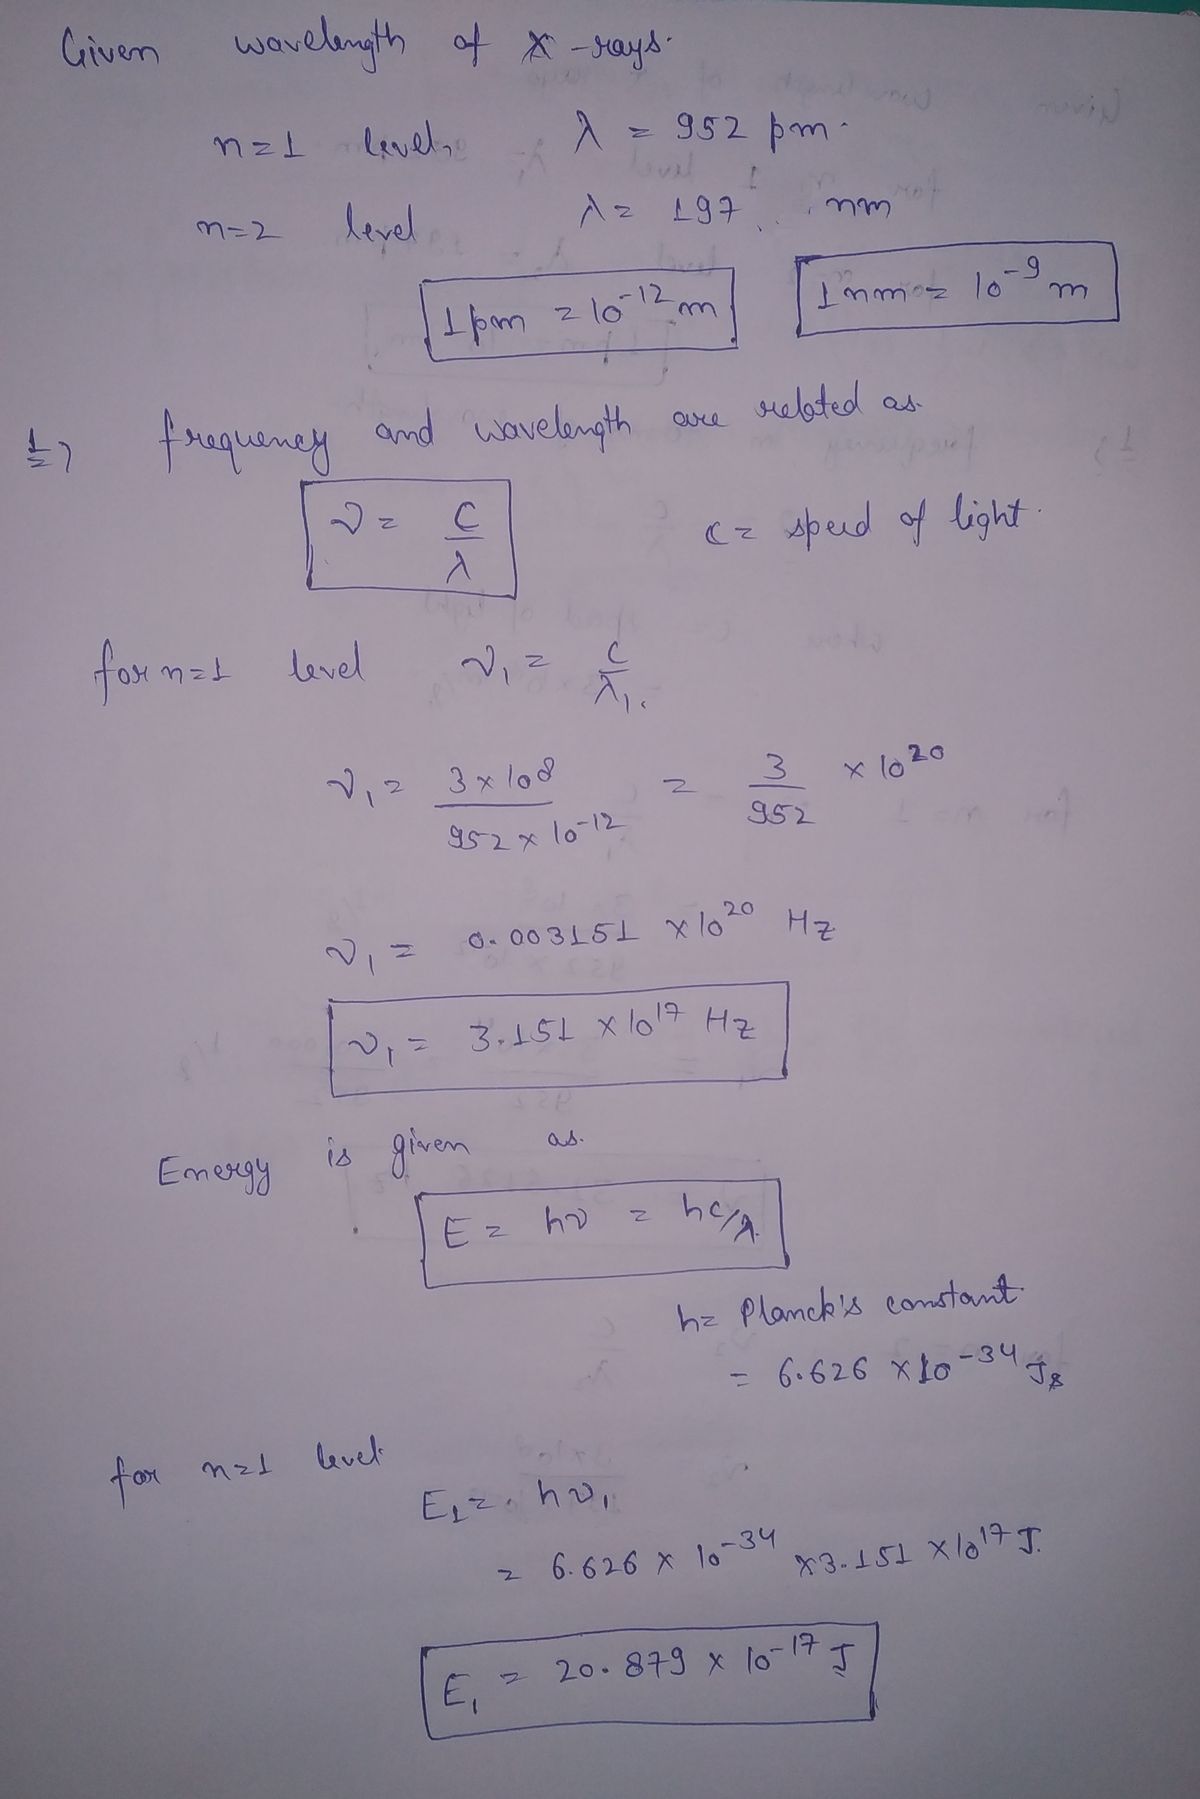 Given wavelength of X-rays.
n=1 level, λ = 952 pm.
n=2 level λ= 197 nm
1 pm = 10⁻¹² m 1 nm = 10⁻⁹ m
1) frequency and wavelength are related as.
ν = C/λ c = speed of light.
for n=1 level ν₁ = C/λ₁.
ν₁ = 3×10⁸/952 × 10⁻¹² = 3/952 × 10²⁰
ν₁ = 0.003151 × 10²⁰ Hz
ν₁ = 3.151 × 10¹⁷ Hz
Energy is given as.
E = hν = hc/λ.
h= Planck's constant.
= 6.626 × 10⁻³⁴ Js
for n=1 level.
E₁ = hν₁
= 6.626 × 10⁻³⁴ × 3.151 × 10¹⁷ J.
E₁ = 20.879 × 10⁻¹⁷ J